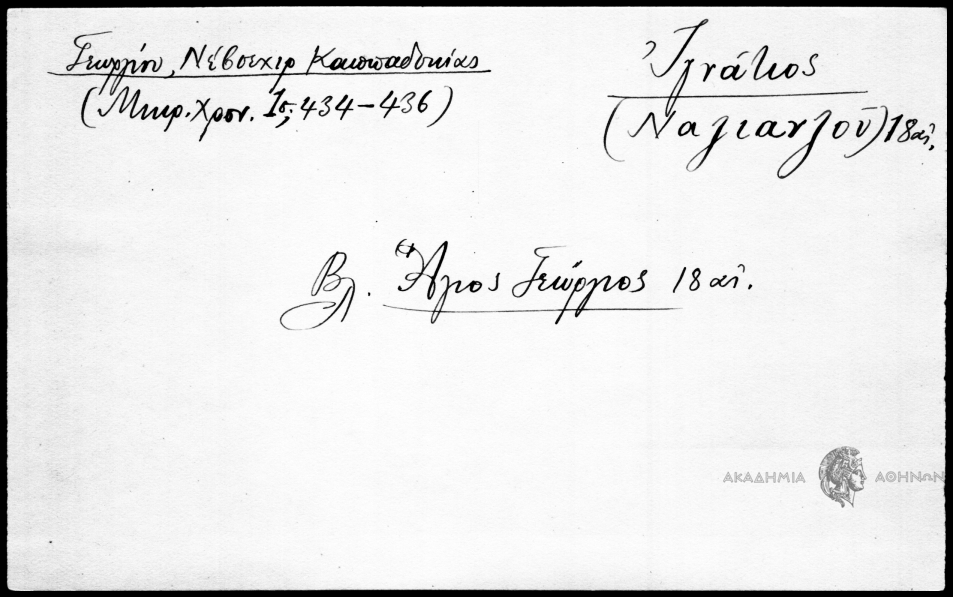 Γεωργίου, Νέβσεχιρ Καππαδοκίας
(Μικρ. Χρον. Ις; 434-436)
Ἰγνάτιος
(Ναζιανζοῦ) 18 αἰ.
Βλ. Ἅγιος Γεώργιος 18 αἰ.
ΑΚΑΔΗΜΙΑ ΑΘΗΝΩΝ